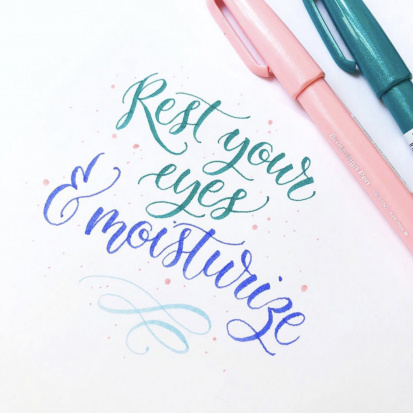 Rest your
eyes
& moisturize